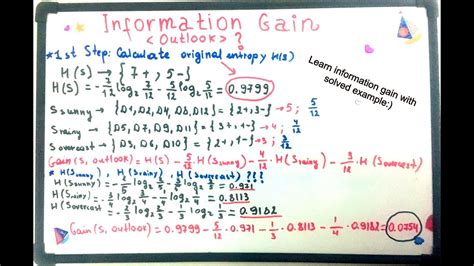 Information Gain
< Outlook > ?
* 1st Step: Calculate original entropy H(S)
H(S) → {7+, 5-}
H(S) = - 7/12 log₂ 7/12 - 5/12 log₂ 5/12 = 0.9799
Learn information gain with
solved example:)
S sunny → {D1, D2, D4, D8, D12} = {2+, 3-} → 5 ; 5/12
S rainy → {D5, D7, D9, D11} = {3+, 1-} → 4 ; 4/12
S overcast → {D3, D6, D10} = {2+, 1-} → 3 ; 3/12
Gain(S, outlook) = H(S) - 5/12 · H(Ssunny) - 4/12 · H(Srainy) - 3/12 · H(Sovercast)
* H(Ssunny) , H(Srainy) , H(Sovercast) ???
H(Ssunny) = - 2/5 log₂ 2/5 - 3/5 log₂ 3/5 = 0.971
H(Srainy) = - 3/4 log₂ 3/4 - 1/4 log₂ 1/4 = 0.8113
H(Sovercast = - 2/3 log₂ 2/3 - 1/3 log₂ 1/3 = 0.9182
Gain(S, outlook) = 0.9799 - 5/12 · 0.971 - 1/3 · 0.8113 - 1/4 · 0.9182 = 0.0754